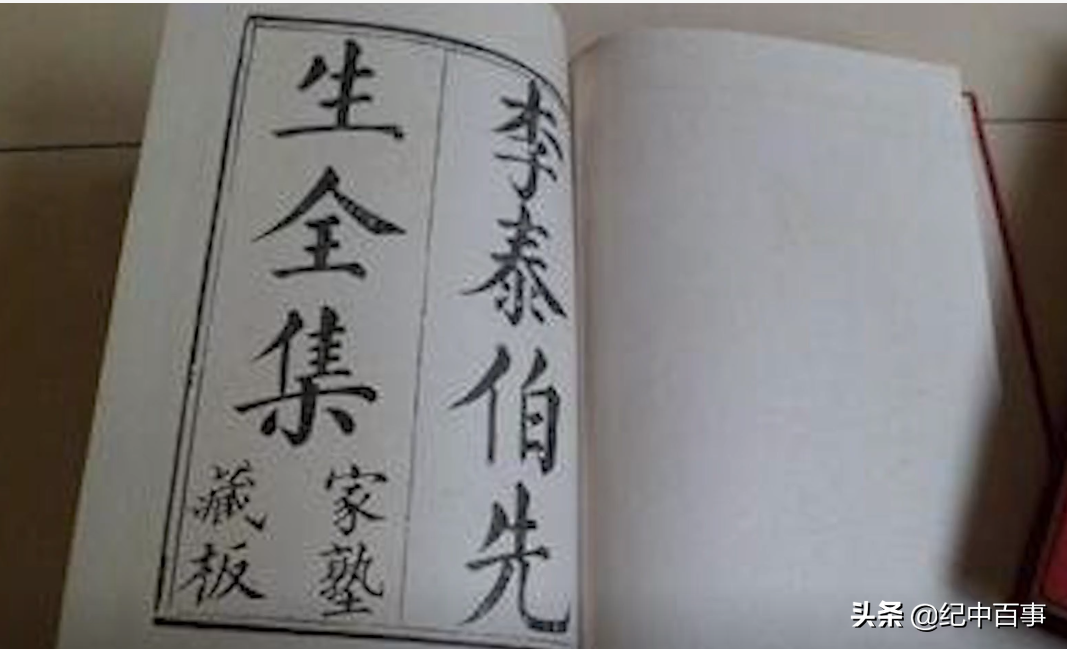 李泰伯先
生全集
家塾
藏板
头条 @纪中百事